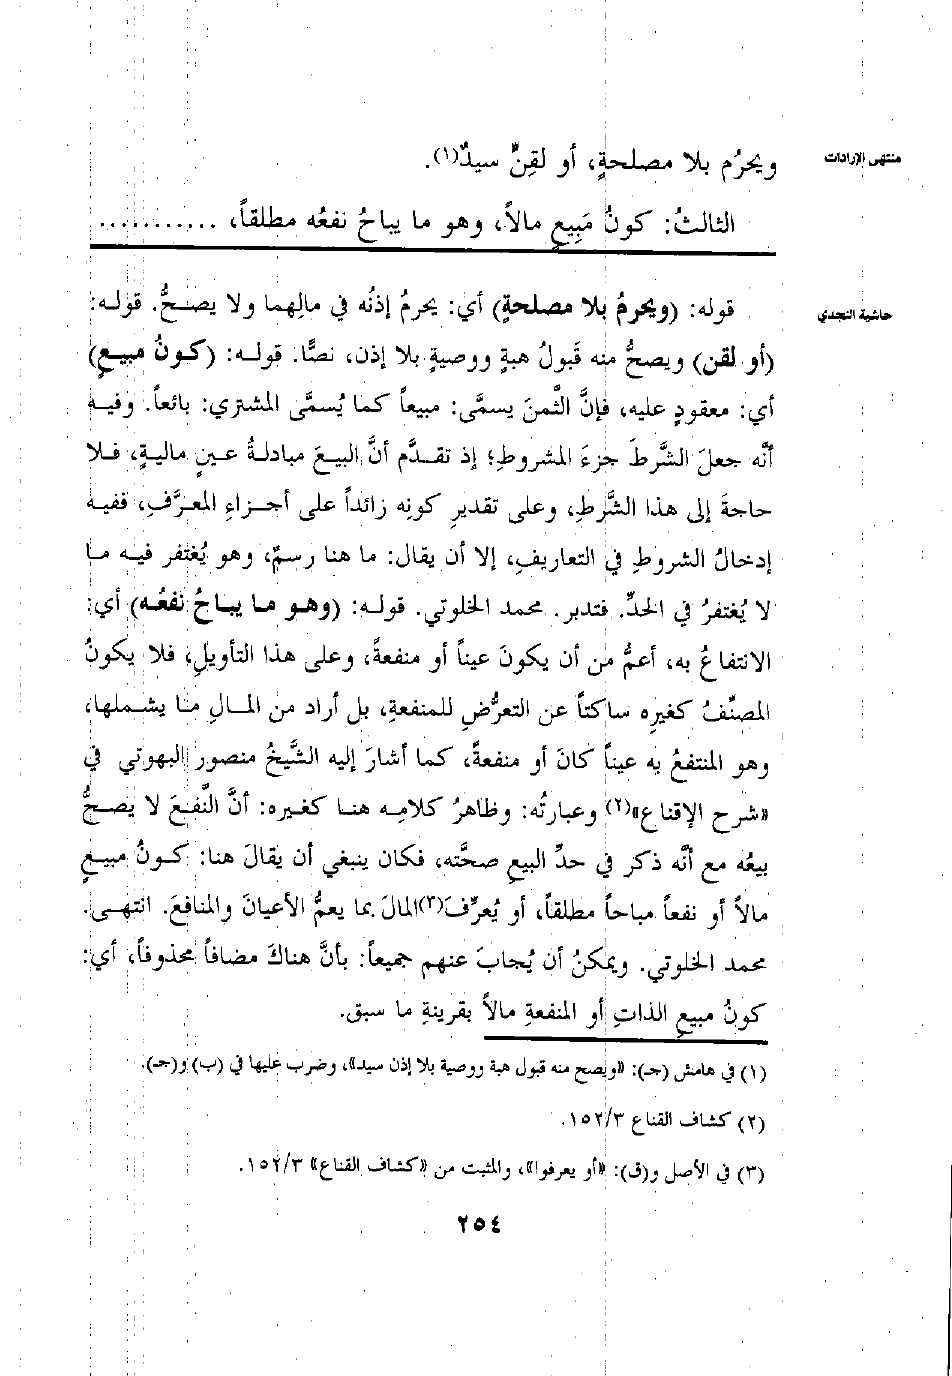 منتهى الإرادات
ويحرُم بلا مصلحةٍ، أو لقِنٍّ سيدٌ(١).
الثالثُ: كونُ مَبِيعٍ مالاً، وهو ما يباحُ نفعُه مطلقاً، ...........
حاشية النجدي
قوله: (ويحرمُ بلا مصلحةٍ) أي: يحرمُ إذنُه في مالِهما ولا يصحُّ. قوله:
(أو لقن) ويصحُّ منه قَبولُ هبةٍ ووصيةٍ بلا إذن، نصًّا. قوله: (كونُ مبيعٍ)
أي: معقودٍ عليه، فإنَّ الثَّمنَ يسمَّى: مبيعاً كما يُسمَّى المشتري: بائعاً. وفيه
أنَّه جعلَ الشَّرطَ جزءَ المشروطِ؛ إذ تقدَّم أنَّ البيعَ مبادلةُ عينٍ ماليةٍ، فلا
حاجةَ إلى هذا الشَّرطِ، وعلى تقديرِ كونِه زائداً على أجزاءِ المعرَّفِ، ففيه
إدخالُ الشروطِ في التعاريفِ، إلا أن يقال: ما هنا رسمٌ، وهو يُغتفر فيه ما
لا يُغتفرُ في الحدِّ. فتدبر. محمد الخلوتي. قوله: (وهو ما يباحُ نفعُه) أي:
الانتفاعُ به، أعمُّ من أن يكونَ عيناً أو منفعةً، وعلى هذا التأويلِ، فلا يكونُ
المصنِّفُ كغيرِه ساكتاً عن التعرُّضِ للمنفعةِ، بل أراد من المالِ ما يشملها،
وهو المنتفعُ به عيناً كانَ أو منفعةً، كما أشارَ إليه الشَّيخُ منصور البهوتي في
«شرح الإقناع»(٢) وعبارتُه: وظاهرُ كلامِه هنا كغيره: أنَّ النَّفعَ لا يصحُّ
بيعُه مع أنَّه ذكر في حدِّ البيعِ صحَّته، فكان ينبغي أن يقالَ هنا: كونُ مبيعٍ
مالاً أو نفعاً مباحاً مطلقاً، أو يُعرِّفَ(٣)المالَ بما يعمُّ الأعيانَ والمنافعَ. انتهى.
محمد الخلوتي. ويمكنُ أن يُجابَ عنهم جميعاً: بأنَّ هناكَ مضافاً محذوفاً، أي:
كونُ مبيعٍ الذاتِ أو المنفعةِ مالاً بقرينةِ ما سبق.
(١) في هامش (حـ): «ويصح منه قبول هبة ووصية بلا إذن سيد»، وضرب عليها في (ب) و(حـ).
(٢) كشاف القناع ١٥٢/٣.
(٣) في الأصل و(ق): «أو يعرفوا»، والمثبت من «كشاف القناع» ١٥٢/٣.
٢٥٤